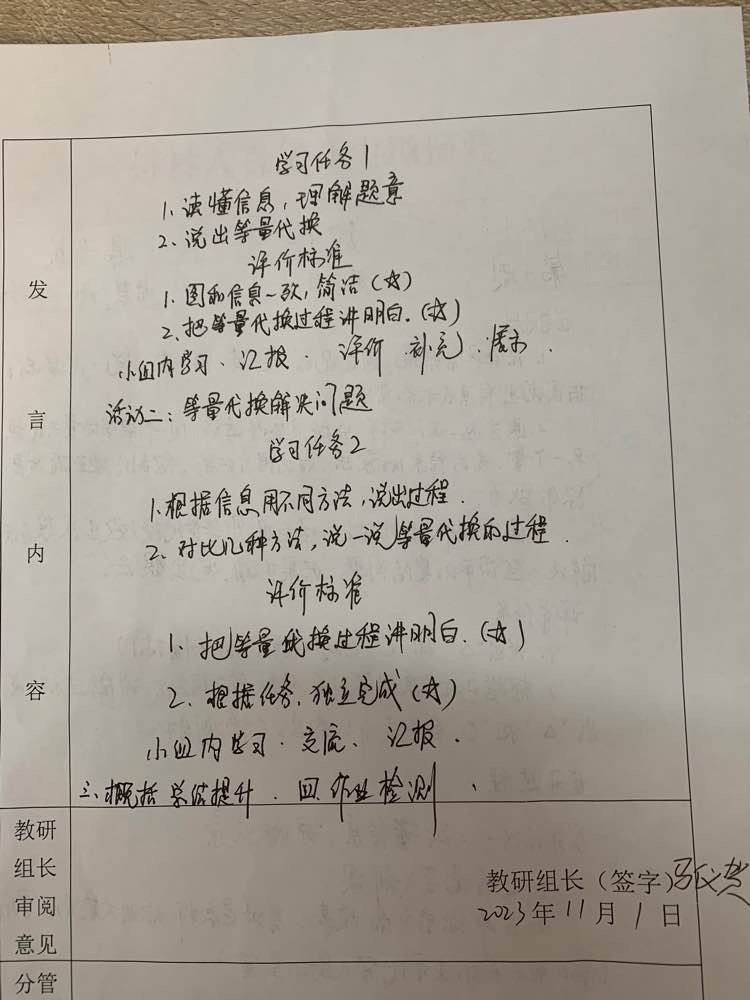 学习任务1
1、读懂信息，理解题意
2、说出等量代换
评价标准
1、图和信息一致，简洁（☆）
2、把等量代换过程讲明白．（☆）
小组内学习、汇报、评价、补充、展示．
活动二：等量代换解决问题
学习任务2
1、根据信息用不同方法，说出过程．
2、对比几种方法，说一说等量代换的过程．
评价标准
1、把等量代换过程讲明白．（☆）
2、根据任务，独立完成（☆）
小组内学习、交流、汇报．
三、概括总结提升．四、作业检测、
发
言
内
容
教研
组长
审阅
意见
教研组长（签字）马
2023年11月1日
分管